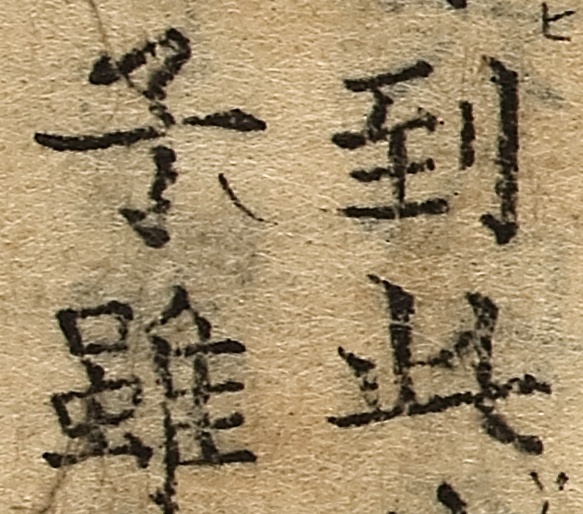 到此
子雖